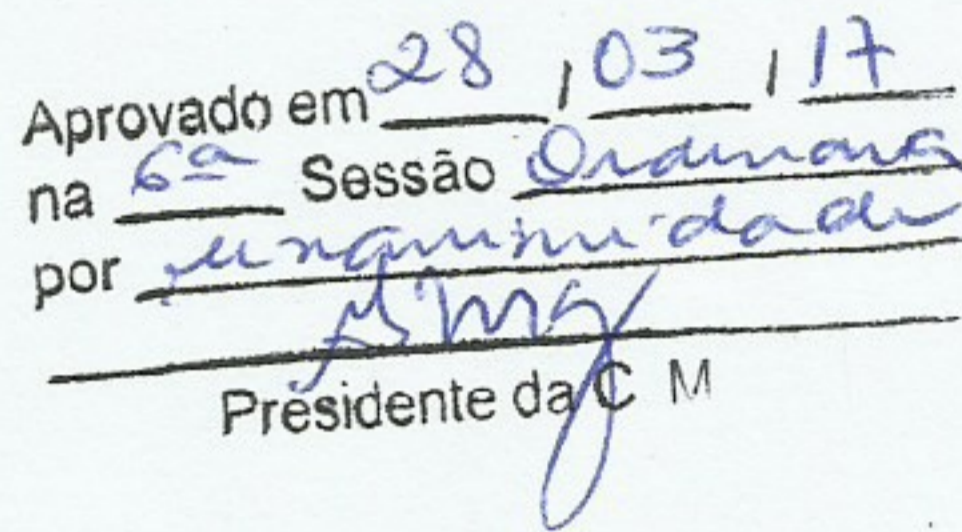 Aprovado em 28 / 03 / 17
na 6ª Sessão Ordinaria
por unanimidade
Presidente da C M